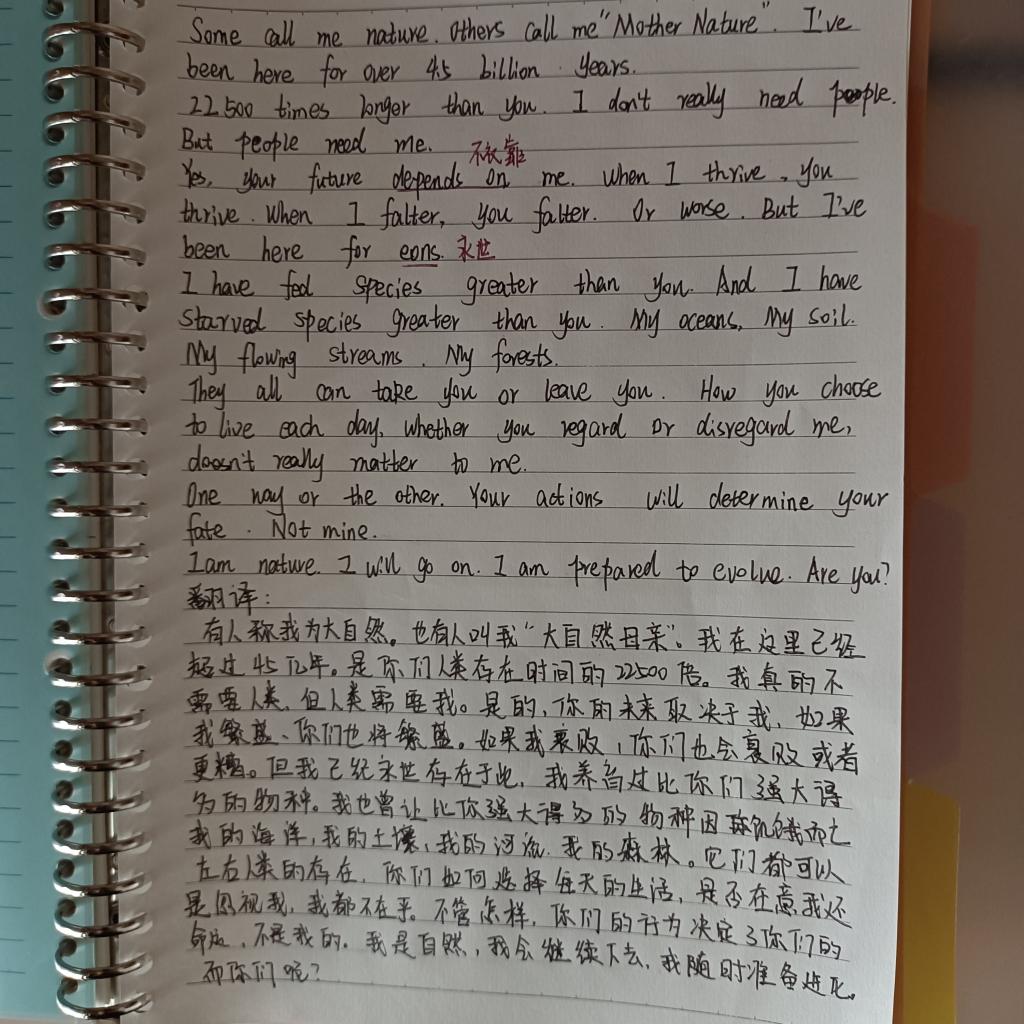 Some call me nature. Others call me "Mother Nature". I've
been here for over 4.5 billion years.
22.500 times longer than you. I don't really need people.
But people need me.
不依靠
Yes, your future depends on me. When I thrive, you
thrive. When I falter, you falter. Or worse. But I've
been here for eons. 永世
I have fed species greater than you. And I have
starved species greater than you. My oceans, My soil.
My flowing streams. My forests.
They all can take you or leave you. How you choose
to live each day, whether you regard or disregard me,
doesn't really matter to me.
One way or the other. Your actions will determine your
fate. Not mine.
I am nature. I will go on. I am prepared to evolve. Are you?
翻译:
有人称我为大自然。也有人叫我"大自然母亲"。我在这里已经
超过45亿年。是你们人类存在时间的22500倍。我真的不
需要人类,但人类需要我。是的,你的未来取决于我,如果
我繁盛、你们也将繁盛。如果我衰败,你们也会衰败或者
更糟。但我已经永世存在于此,我养育过比你们强大得
多的物种。我也曾让比你强大得多的物种因饥饿而亡
我的海洋,我的土壤,我的河流,我的森林。它们都可以
左右人类的存在,你们如何选择每天的生活,是否在意我还
是忽视我,我都不在乎。不管怎样,你们的行为决定了你们的
命运,不是我的。我是自然,我会继续下去,我随时准备进化。
而你们呢?